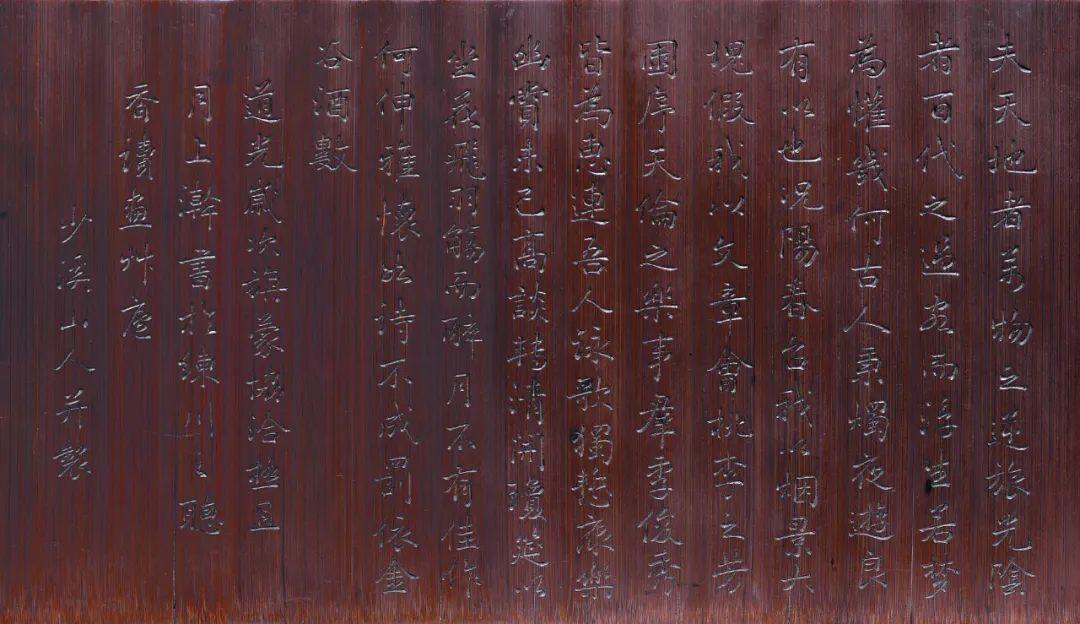 夫天地者萬物之逆旅光陰
者百代之過客而浮生若夢
為懽幾何古人秉燭夜遊良
有以也況陽春召我以烟景大
塊假我以文章會桃李之芳
園序天倫之樂事羣季俊秀
皆為惠連吾人詠歌獨慙康樂
幽賞未已高談轉清開瓊筵以
坐花飛羽觴而醉月不有佳作
何伸雅懷如詩不成罰依金
谷酒數
道光歲次旃蒙協洽極且
月上澣書於練川之聽
香讀畫艸庵
少溪山人并製